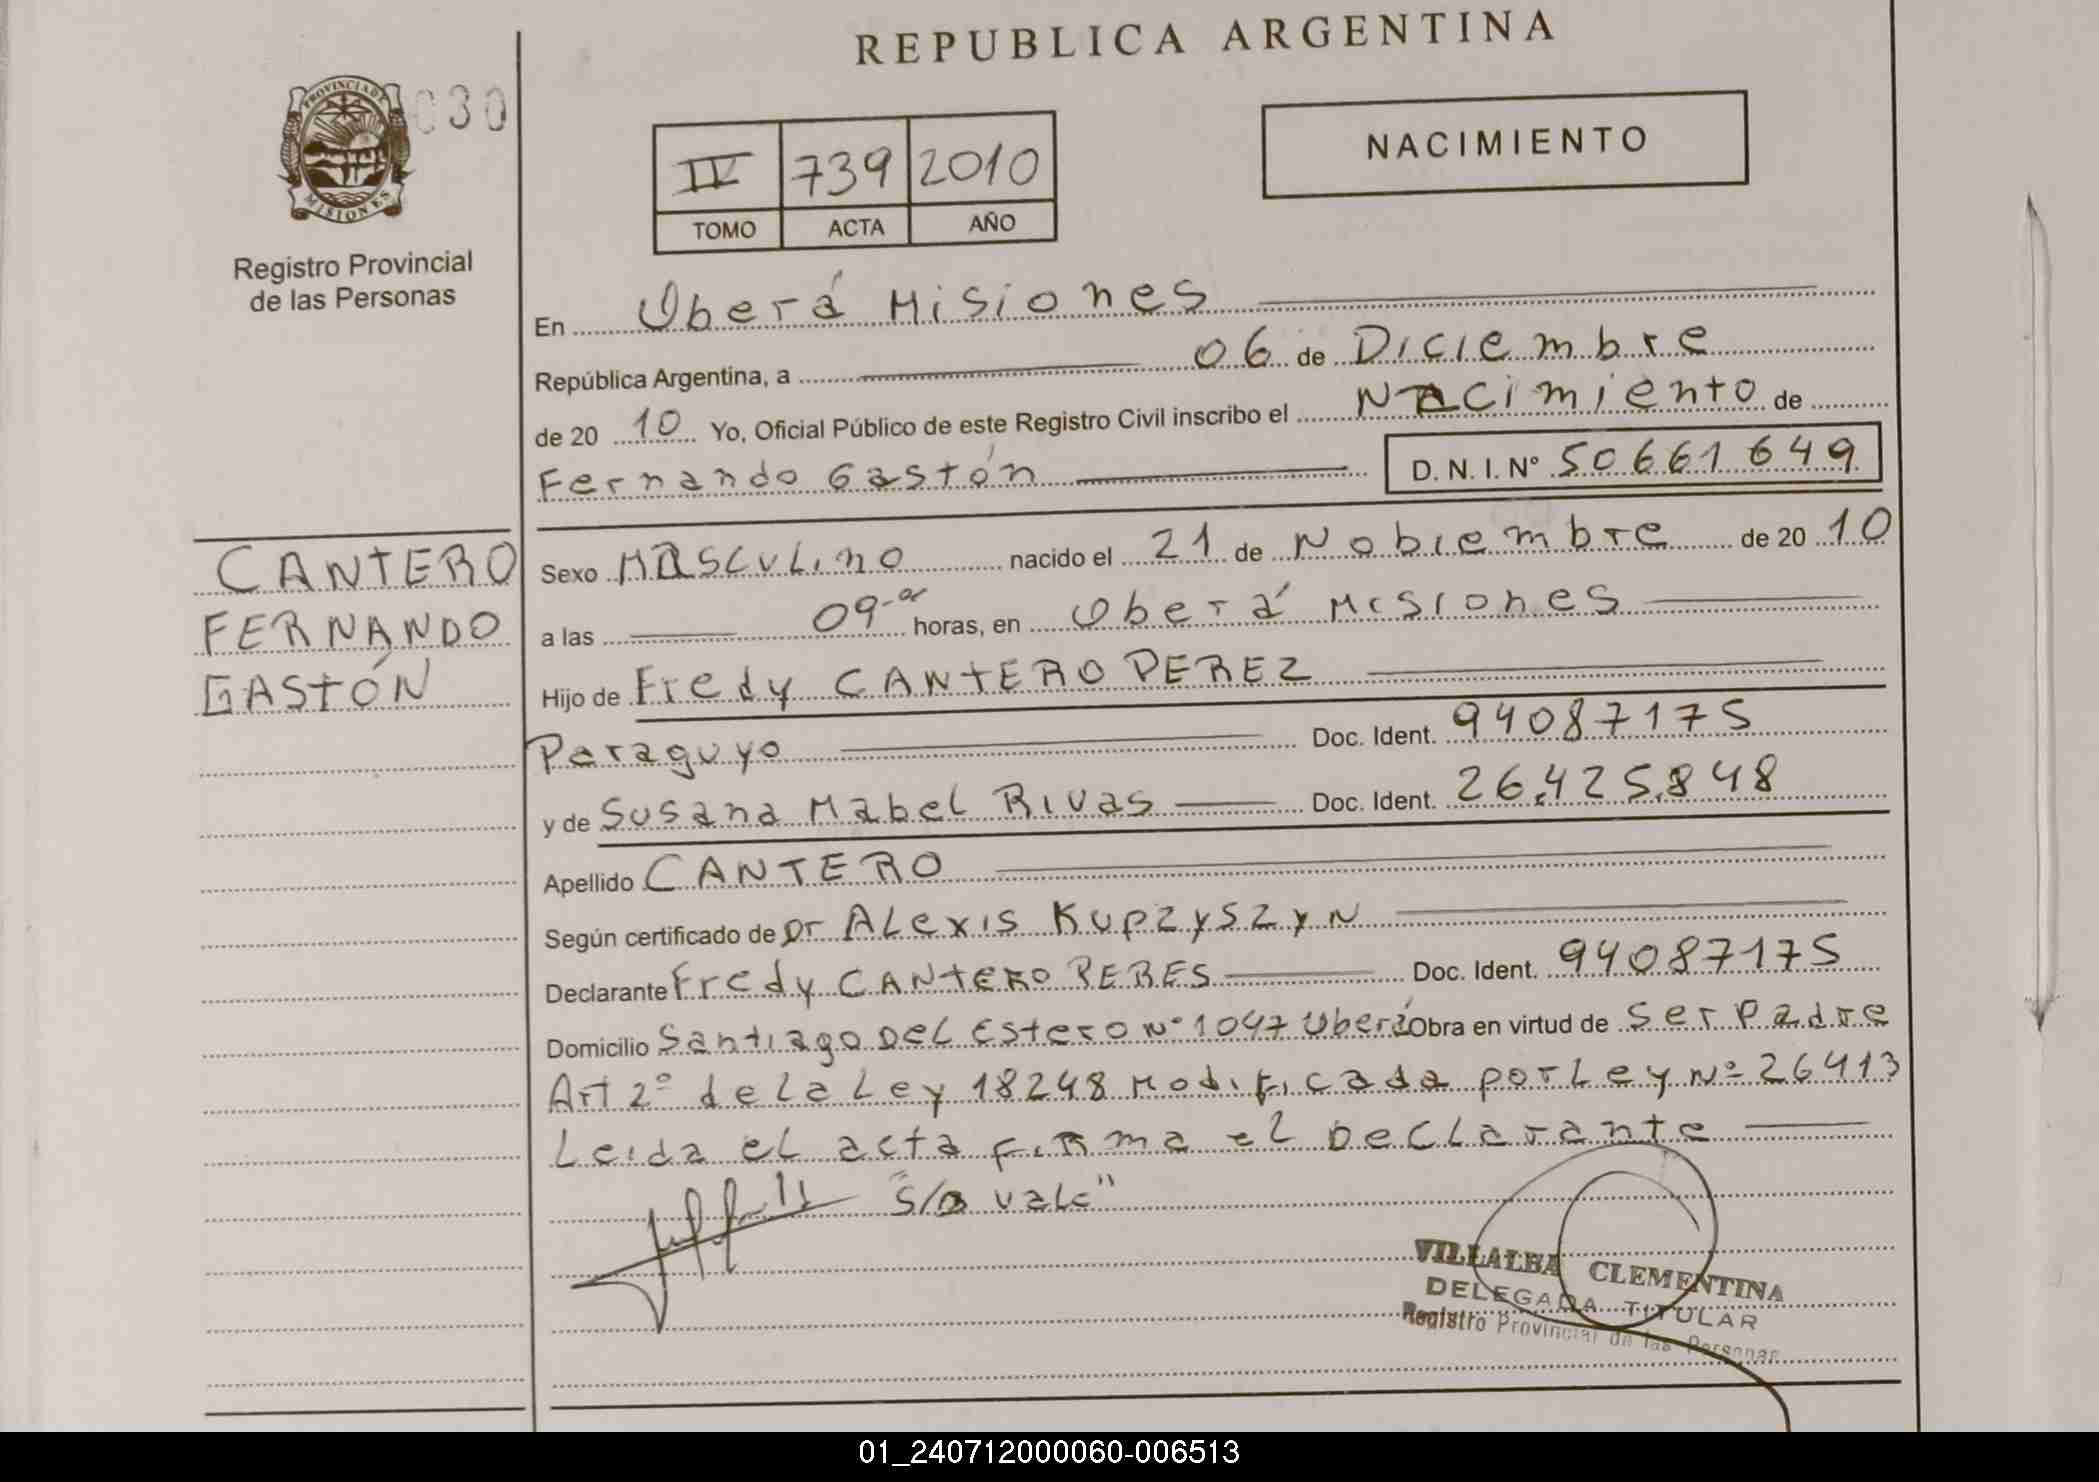 REPUBLICA ARGENTINA
PROVINCIA DE MISIONES
030
Registro Provincial
de las Personas
IV 739 2010
TOMO ACTA AÑO
NACIMIENTO
En Oberá Misiones
República Argentina, a 06 de Diciembre
de 20 10 Yo, Oficial Público de este Registro Civil inscribo el Nacimiento de
Fernando Gastón D. N. I. Nº 50661649
CANTERO
FERNANDO
GASTÓN
Sexo Masculino nacido el 21 de Nobiembre de 20 10
a las 09 horas, en Oberá Misiones
Hijo de Fredy CANTERO PEREZ
Paraguyo Doc. Ident. 94087175
y de Susana Mabel Rivas Doc. Ident. 26.425.848
Apellido CANTERO
Según certificado de Dr Alexis Kupzyszyn
Declarante Fredy CANTERO PERES Doc. Ident. 94087175
Domicilio Santiago Del Estero Nº 1047 Oberá Obra en virtud de ser Padre
Art 2º de la Ley 18248 Modificada por Ley Nº 26413
Leida el acta firma el Declarante
"S/a vale"
VILLALBA CLEMENTINA
DELEGADA TITULAR
Registro Provincial de las Personas
01_240712000060-006513